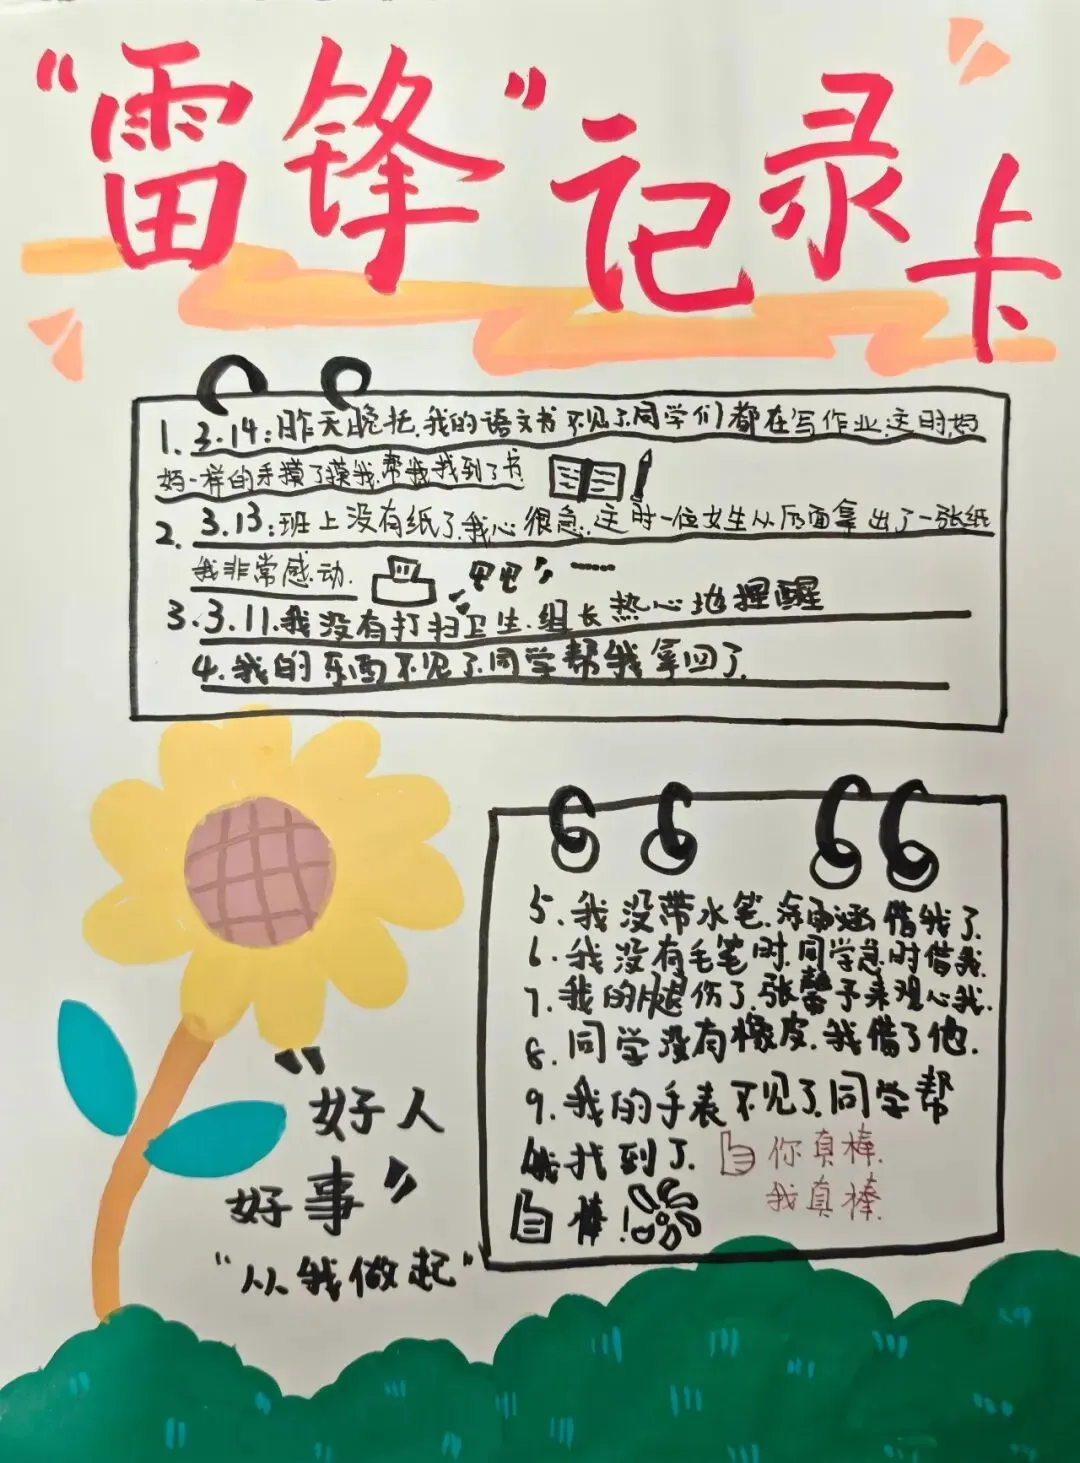 “雷锋”记录卡
1. 3.14:昨天晚托.我的语文书不见了.同学们都在写作业.这时,妈
妈一样的手摸了摸我,帮我找到了书
2. 3.13:班上没有纸了.我心很急.这时一位女生从后面拿出了一张纸
我非常感动.
3. 3.11.我没有打扫卫生.组长热心地提醒
4.我的东西不见了.同学帮我拿回了.
5.我没带水笔.涂雨涵借我了.
6.我没有毛笔时.同学急时借我.
7.我的腿伤了.张馨予来观心我.
8.同学没有橡皮.我借了他.
9.我的手表不见了.同学帮
我找到了.
你真棒.
我真棒.
棒!
“好人
好事”
“从我做起”